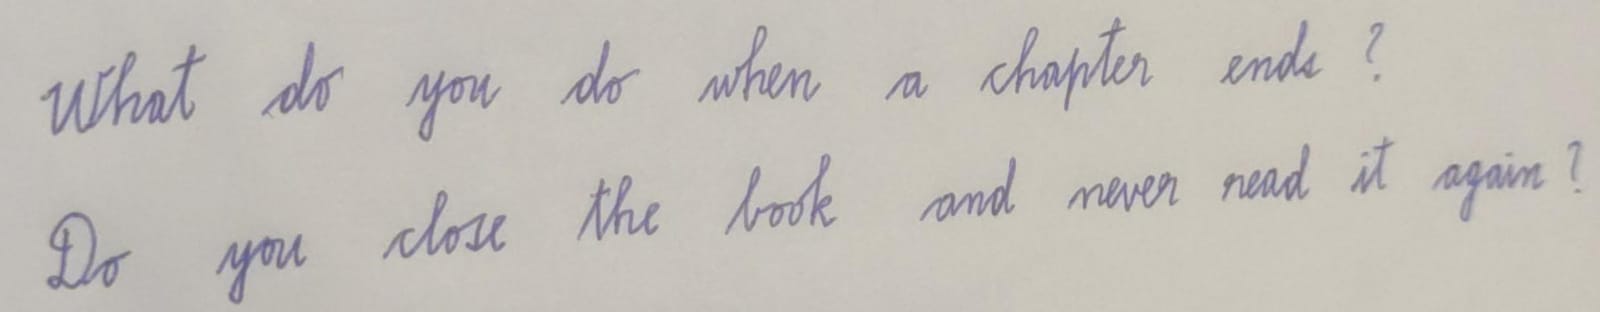 What do you do when a chapter ends ?
Do you close the book and never read it again ?